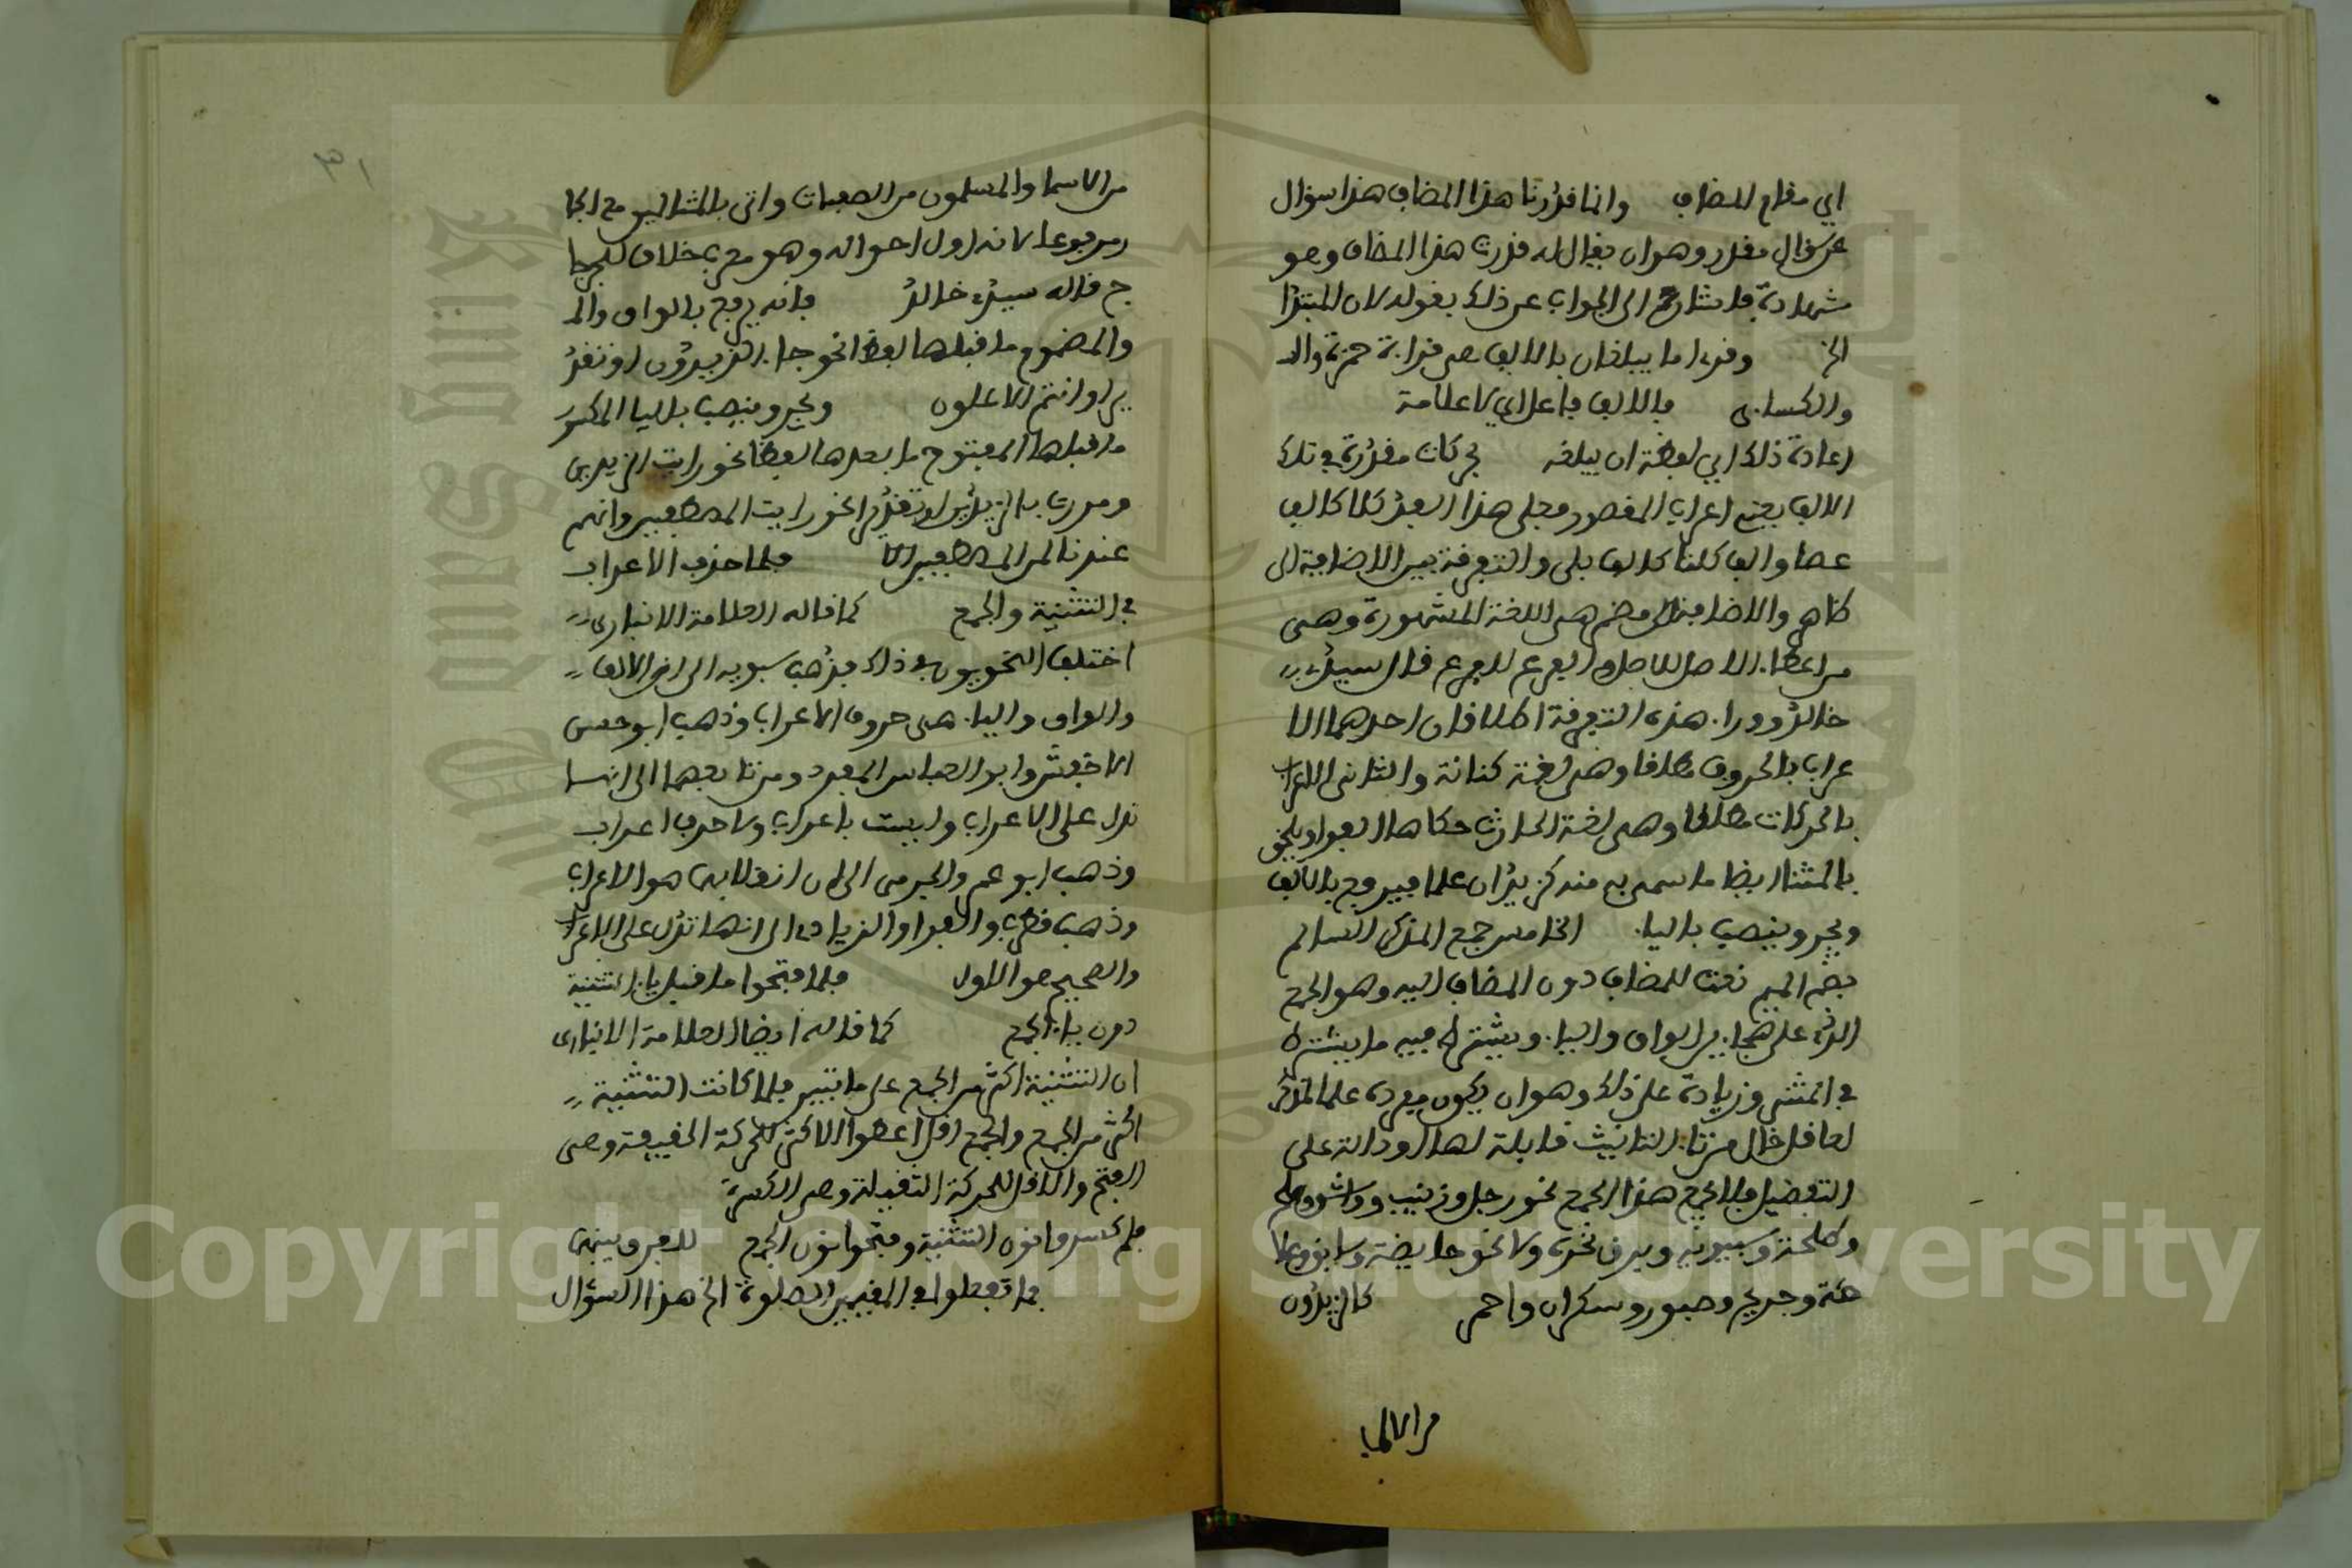 اي مقام المضاف وانما قدرنا هذا المضاف هذا سؤال
عن سؤال مقدر وهو ان يقال له قدرت هذا المضاف وهو
شهادة فاشار الى الجواب عن ذلك بقوله لان المبتدا
الخ وقرء اما يبلغان بالالف هي قراءة حمزة وال
والكساءى فالالف فاعل اي لا علامة
اعادة ذلك اي لفظة ان يبلغه بحركات مقدرة في تلك
الالف يعني اعراب المقصور فعلى هذا القدر كلا كالف
عصا والف كلتا كالف بلى والتفرقة بين الاضافة الى
ظاهر والاضافة الى مضمر هي اللغة المشهورة وهي
من اعطاء الاصل للاصل والفرع للفرع قال سيدي
خالد وورا هذه التفرقة اطلاقان احدهما الا
عراب بالحروف مطلقا وهي لغة كنانة والثاني الاعراب
بالحركات مطلقا وهي لغة الحارث حكاها الفرا ويلحق
بالمثنا ايضا ما سمي به منه كزيدان علما فيرفع بالالف
ويجر وينصب باليا الخامس جمع المذكر السالم
بضم الميم نعت للمضاف دون المضاف اليه وهو الجمع
الذي على هجاءين الواو واليا ويشترط فيه ما يشترط
في المثنى وزيادة على ذلك وهو ان يكون مفرده علما لمذكر
لعاقل خال من تاء التانيث قابلة لها او دالة على
التفضيل فلا يجمع هذا الجمع نحو رجل وزينب وواشق
وطلحة وسيبويه وبرق نحره ولا نحو حايض وسابق وعلا
مة وجريح وصبور وسكران واحمر كالزيدون
من الاسما
٣١
من الاسما والمسلمون من الصفات واتى بالمثالين مع الجا
ومرفوعا لانه اول احواله وهو معرب خلاف للزجا
ج قاله سيدي خالد فانه يرفع بالواو وال
والمضموم ما قبلها لفظا نحو جاء الزيدون او تقد
يرا وانتم الاعلون ويجر وينصب باليا المكسور
ما قبلها المفتوح ما بعدها لفظا نحو رايت الزيدين
ومررت بالزيدين او تقديرا نحو رايت المصطفين وانهم
عندنا لمن المصطفين الا فلما حذف الاعراب
في التثنية والجمع كما قاله العلامة الانباري
اختلف النحويون في ذلك فذهب سيبويه الى ان الالف
والواو واليا هي حروف الاعراب وذهب ابو حسن
الاخفش وابو العباس المبرد ومن تابعهما الى انها
تدل على الاعراب وليست باعراب ولا حرف اعراب
وذهب ابو عمر والجرمي الى ان انقلابها هو الاعراب
وذهب قطرب والفرا والزيادي الى انها تدل على الاعراب
والصحيح هو الاول فلم فتحوا ما قبل ياء التثنية
دون ياء الجمع كما قاله ايضا العلامة الانباري
ان التثنية اكثر من الجمع على ما تبين فلما كانت التثنية
اكثر من الجمع والجمع اقل اعطوا الاكثر الحركة الخفيفة وهي
الفتح والاقل للحركة الثقيلة وهي الكسرة
فلم كسروا نون التثنية وفتحوا نون الجمع للفرق بينهما
فما تفعلوا في المقيمين الصلوة الخ هذا السؤال
Copyright © King Saud University